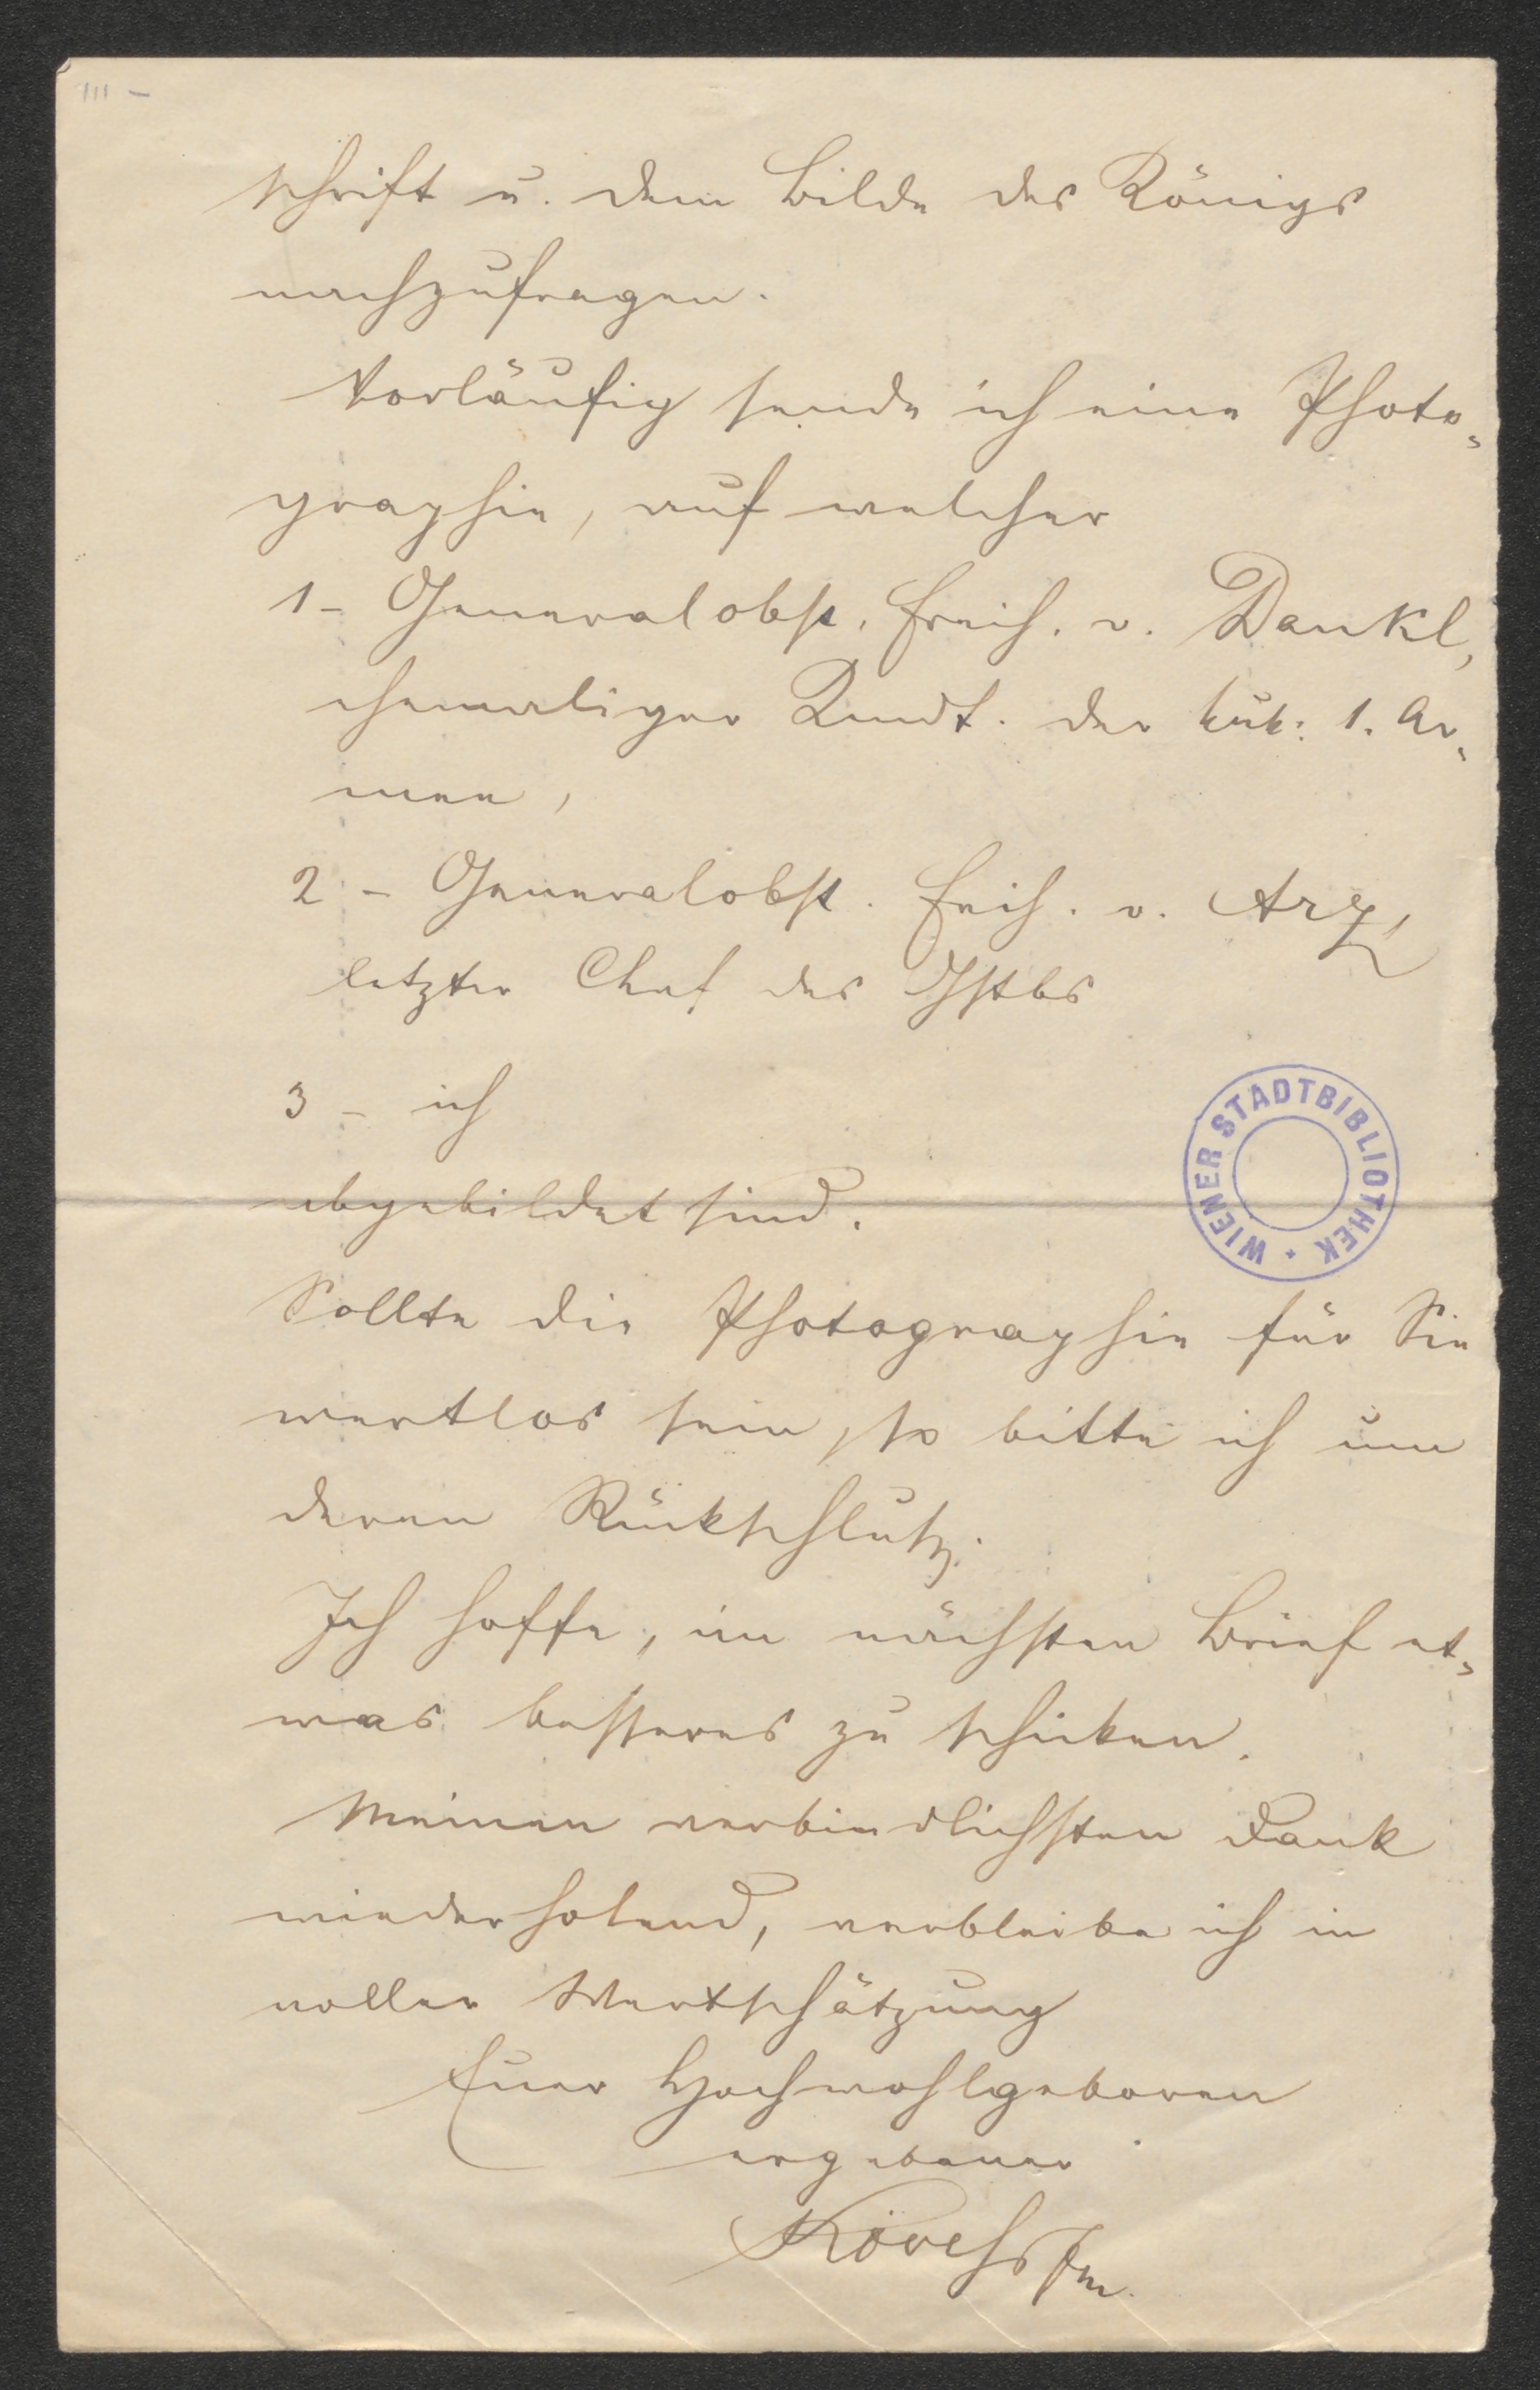 III –
schrift u. dem Bilde des Königs
nachzufragen.
Vorläufig sende ich eine Photo=
graphie, auf welcher
1 – Generalobst. Freih. v. Dankl,
ehemaliger Kmdt. der kuk: 1. Ar=
mee,
2 – Generalobst. Freih. v. Arz,
letzter Chef des Gstbs
3 – ich
abgebildet sind.
WIENER STADTBIBLIOTHEK
Sollte die Photographie für Sie
wertlos sein, so bitte ich um
deren Rückschluß.
Ich hoffe, im nächsten Brief et=
was besseres zu schicken.
Meinen verbindlichsten Dank
wiederholend, verbleibe ich in
voller Wertschätzung
Euer Hochwohlgeboren
ergebener
Kövess Fm.